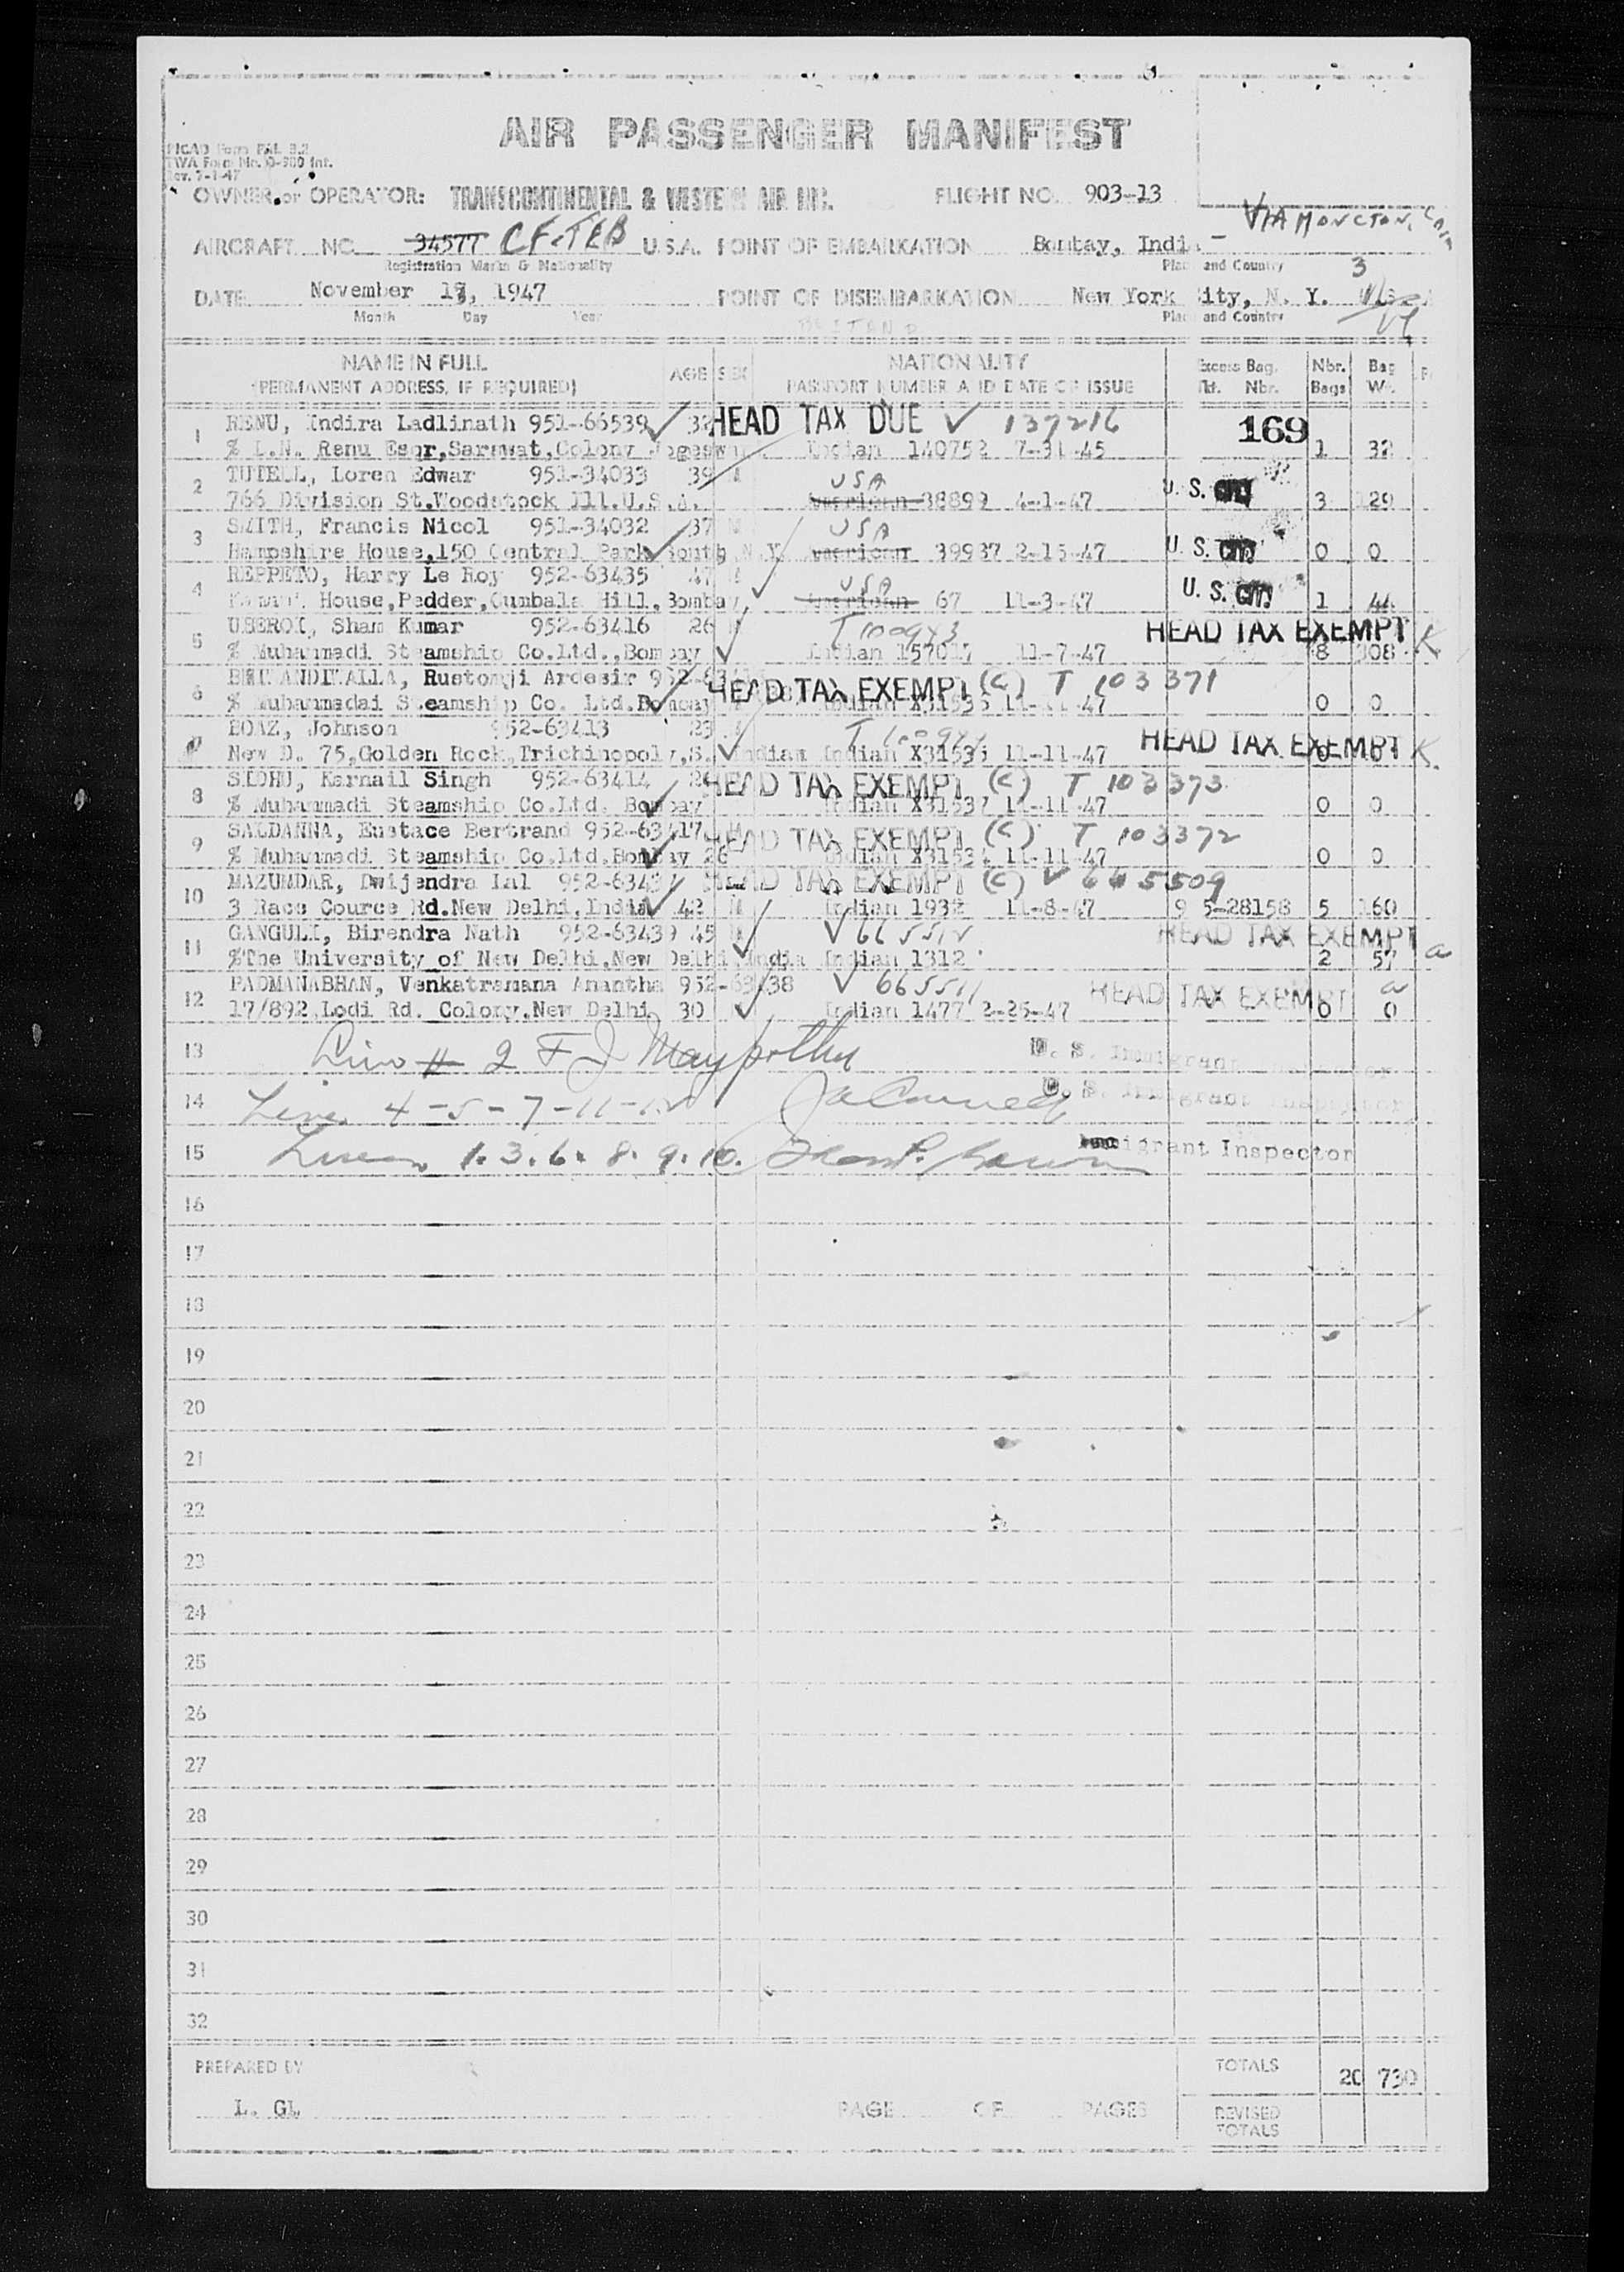 AIR PASSENGER MANIFEST
PICAO Form PAL 3.2
TWA Form No. O-900 Int.
Rev. 7-1-47
OWNER or OPERATOR: TRANSCONTINENTAL & WESTERN AIR INC. FLIGHT NO. 903-13
VIA MONCTON,
AIRCRAFT NO. 34577 CF-TEB U.S.A. POINT OF EMBARKATION Bombay, India -
Registration Marks & Nationality Place and Country
3
DATE November 1 , 1947 POINT OF DISEMBARKATION New York City, N. Y.
Month Day Year Place and Country
NAME IN FULL AGE SEX NATIONALITY Excess Bag. Nbr. Bag
(PERMANENT ADDRESS, IF REQUIRED) PASSPORT NUMBER AND DATE OF ISSUE Tkt. Nbr. Bags Wt.
1 RENU, Indira Ladlinath 951-66539 32 HEAD TAX DUE ✓ 137216 169
% L.N. Renu Esqr,Sarswat,Colony Indian 140752 7-31-45 1 32
2 TUTELL, Loren Edwar 951-34033 39 M USA
766 Division St.Woodstock Ill.U.S.A. American 38899 4-1-47 U. S. 3 129
3 SMITH, Francis Nicol 951-34032 37 M USA
Hampshire House,150 Central Park South N.Y. American 39937 2-15-47 U. S. 0 0
4 REPPETO, Harry Le Roy 952-63435 47 M USA
House,Pedder,Cumbala Hill,Bombay American 67 11-3-47 U. S. 1 44
5 UBEROI, Sham Kumar 952-63416 26 M T100943 HEAD TAX EXEMPT K
% Muhammadi Steamship Co.Ltd.,Bombay Indian 157017 11-7-47 8 308
6 Rustomji Ardesir HEAD TAX EXEMPT (C) T 103371
% Muhammadai Steamship Co. Ltd.Bombay Indian 0 0
7 BOAZ, Johnson 952-63413 23 HEAD TAX EXEMPT K.
New D. 75,Golden Rock,Trichinopoly,S. Indian Indian 11-11-47 0 0
8 SIDHU, Karnail Singh 952-63414 HEAD TAX EXEMPT (C) T 103373
% Muhammadi Steamship Co.Ltd. Bombay Indian X31537 11-11-47 0 0
9 SALDANHA, Eustace Bertrand 952-63417 M HEAD TAX EXEMPT (C) T 103372
% Muhammadi Steamship Co.Ltd.Bombay 26 Indian 11-11-47 0 0
10 MAZUMDAR, Dwijendra Lal HEAD TAX EXEMPT (C) ✓ 665509
3 Race Cource Rd.New Delhi,India 42 M Indian 1932 11-8-47 28158 5 160
11 GANGULI, Birendra Nath 952-63439 45 M HEAD TAX EXEMPT a
%The University of New Delhi,New Delhi,India Indian 1312 2 57
12 PADMANABHAN, Venkatramana Anantha 952-63438 ✓ 665511 HEAD TAX EXEMPT a
17/892,Lodi Rd. Colony,New Delhi 30 Indian 1477 2-25-47 0 0
13 Line # 2 F J U. S. Immigrant Inspector
14 Lines 4-5-7-11-12 U. S. Immigrant Inspector
15 Lines 1. 3. 6. 8. 9. 10. Immigrant Inspector
16
17
18
19
20
21
22
23
24
25
26
27
28
29
30
31
32
PREPARED BY TOTALS 20 730
L. GL PAGE OF PAGES REVISED
TOTALS